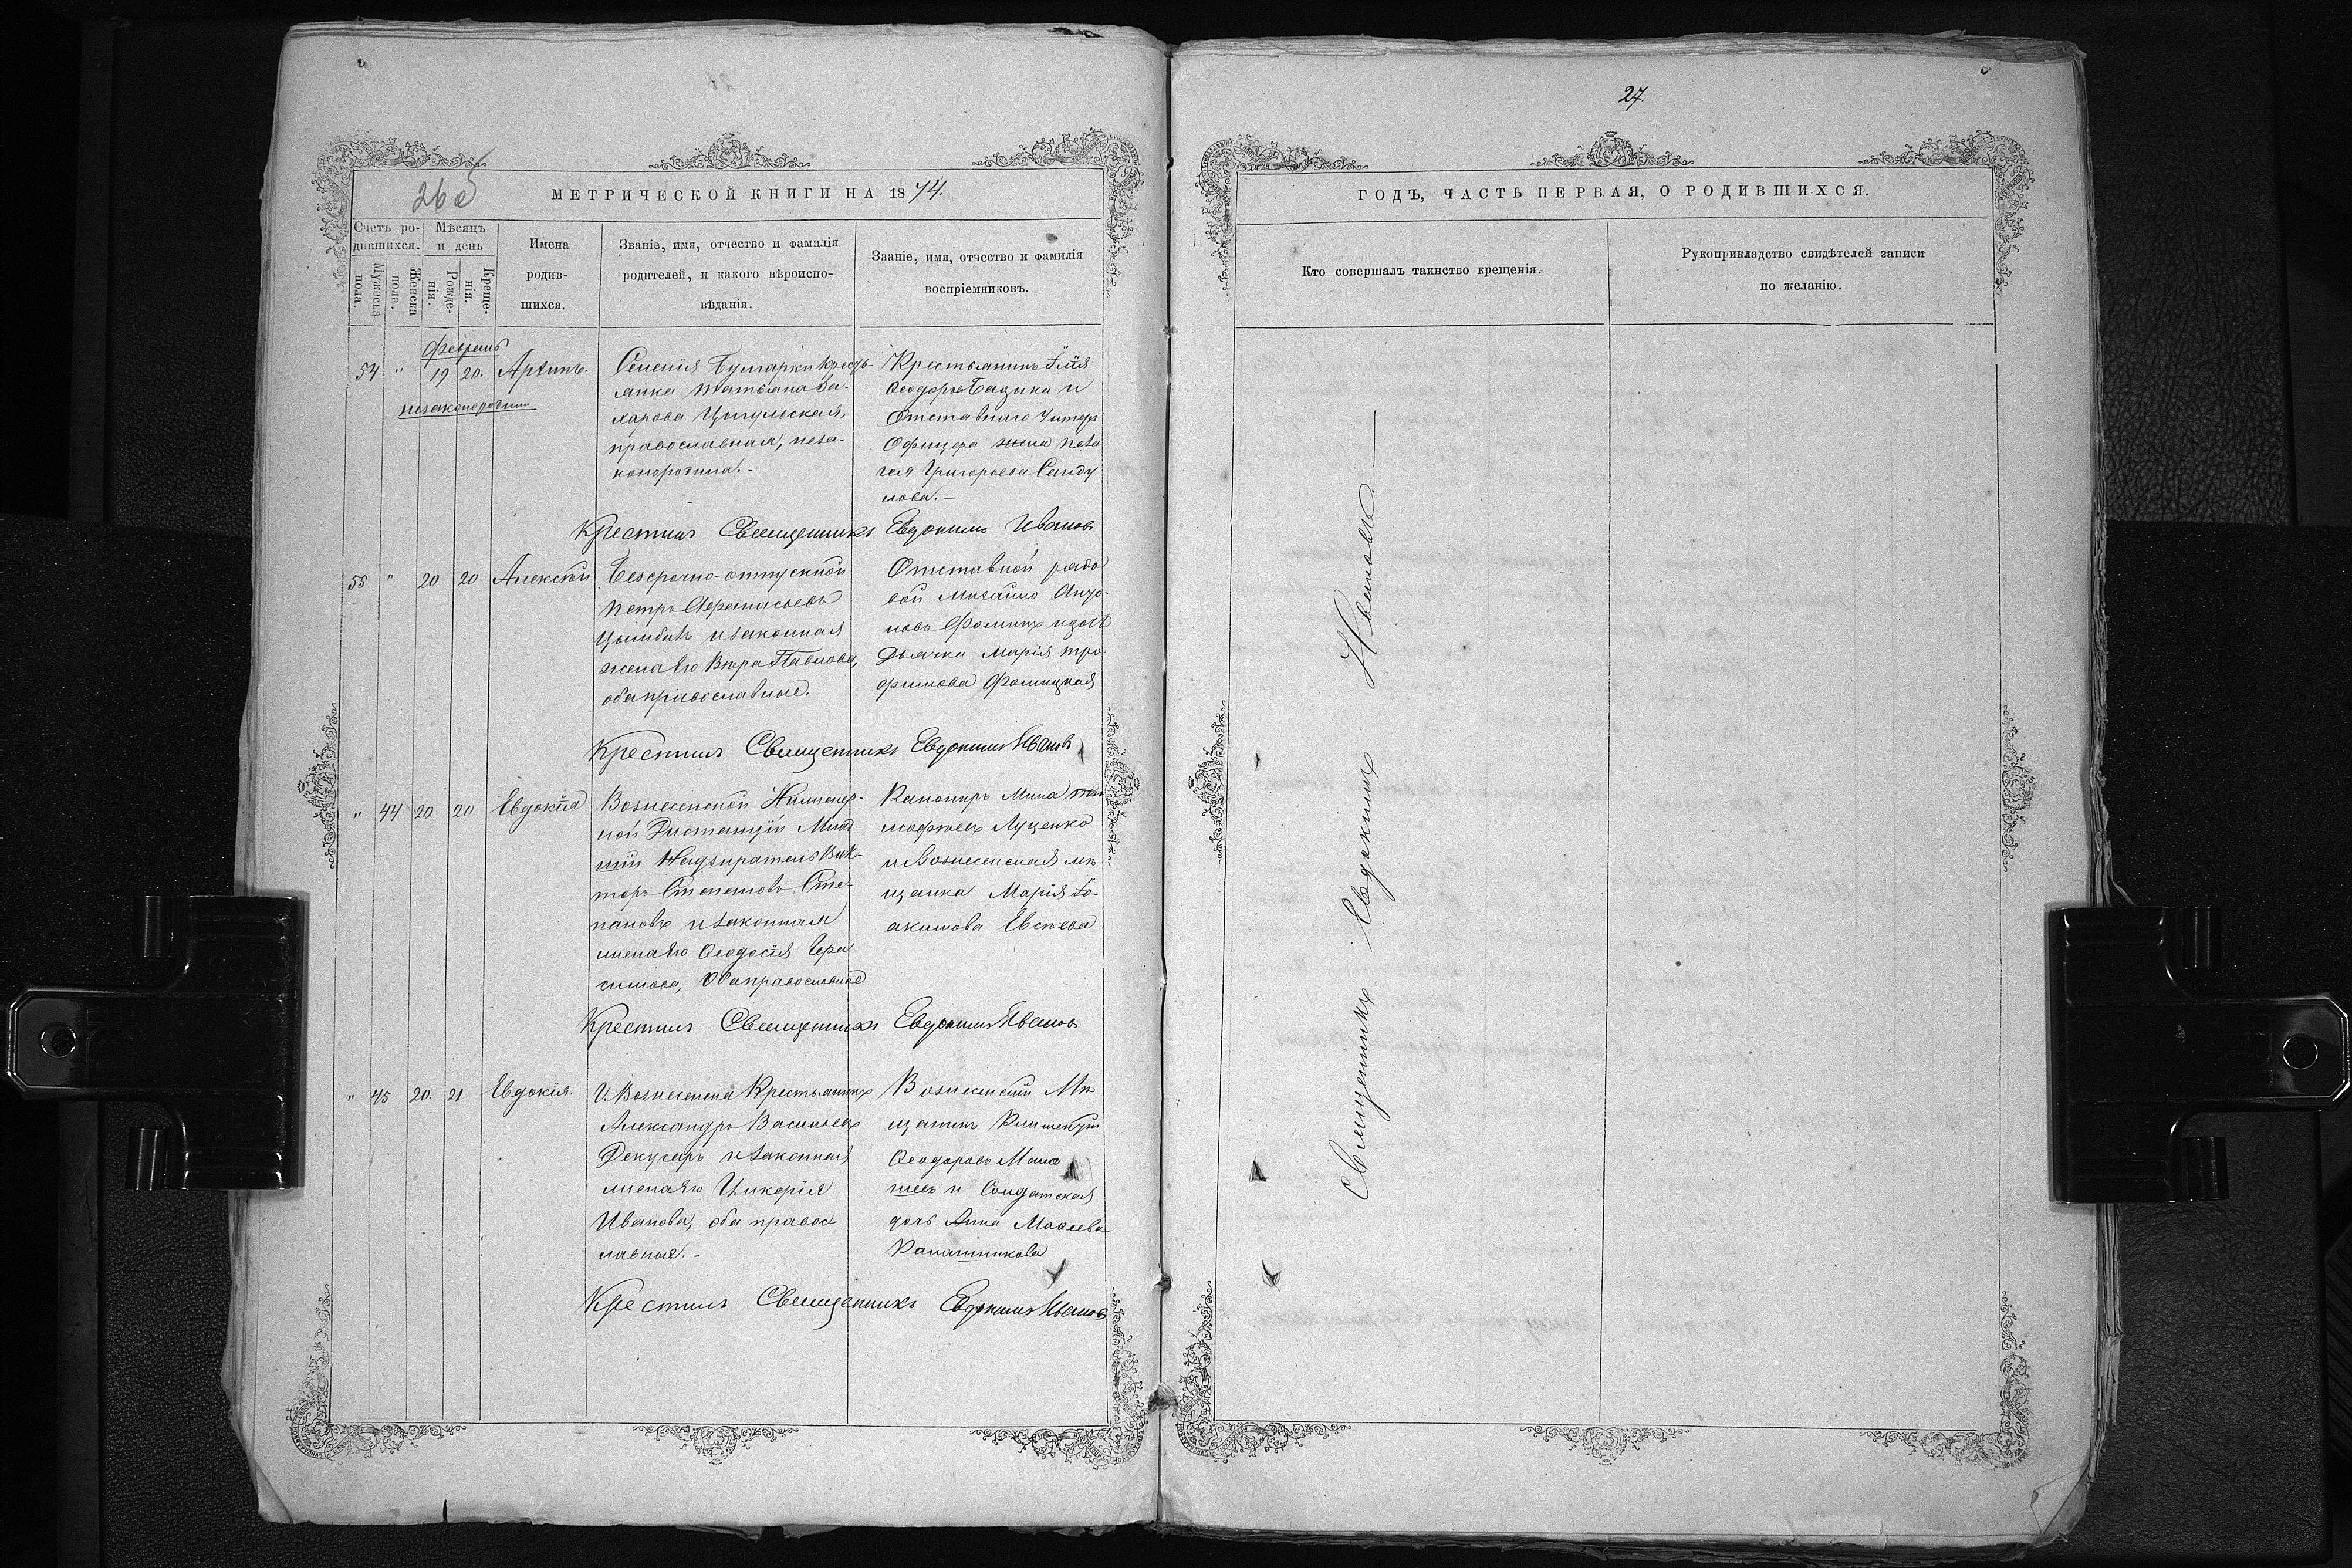 27.
26 об
МЕТРИЧЕСКОЙ КНИГИ НА 1874.
Счетъ ро-
дившихся.
Мужеска
пола.
Женска
пола.
Мѣсяцъ
и день
Рожде-
нія.
Креще-
нія.
Имена
родив-
шихся.
Званіе, имя, отчество и фамилія
родителей, и какого вѣроиспо-
вѣданія.
Званіе, имя, отчество и фамилія
воспріемниковъ.
Февраль
54 " 19 20. Архипъ.
незаконорожден
Селенія Булгарки кресть-
янка Татьяна За-
харова Цыгульская,
православная, неза-
конорожена.-
Крестьянинъ Илія
Ѳеодоровъ Бадыка и
Отставнаго Унтеръ
Офицера жена Пела
гея Григорьева Санду
лова.-
Крестилъ Священникъ Евдокимъ Ивановъ
55 " 20 20 Алексѣй
Безсрочно-отпускной
Петръ Афанасьевъ
Цымбалъ и законная
жена его Вѣра Павлова,
оба православные.
Отставной рядо
вой Михаилъ
новъ Фоминъ и дочь
Дьячка Марія Тро
фимова Фомицкая
Крестилъ Священникъ Евдокимъ Ивановъ
" 44 20 20 Евдокія
Вознесенской Инженер-
ной Дистанціи Млад-
шій Надзиратель Вик-
торъ Степановъ Сте-
пановъ и законная
жена его Ѳеодосія Гера
симова, Оба православные
Канониръ Мина Тим
мофѣевъ Луценко
и Вознесенская мѣ
щанка Марія Іо-
акимова Евсѣева
Крестилъ Священникъ Евдокимъ Ивановъ
" 45 20. 21 Евдокія.
Г. Вознесенска Крестьянинъ
Александръ Васильевъ
Декусаръ и законная
жена его Гликерія
Иванова, оба правос
лавные.-
Вознесенскій Мѣ
щанинъ Климентій
Ѳеодоровъ
и Солдатская
дочь Анна Моосеева
Калашникова
Крестилъ Священникъ Евдокимъ Ивановъ
ГОДЪ, ЧАСТЬ ПЕРВАЯ, О РОДИВШИХСЯ.
Кто совершалъ таинство крещенія.
Рукоприкладство свидѣтелей записи
по желанію.
Священникъ Евдокимъ Ивановъ